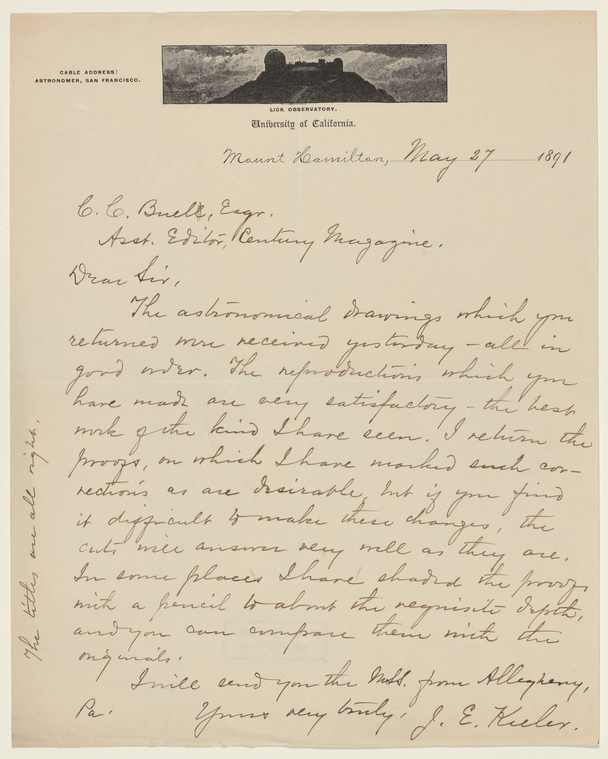 CABLE ADDRESS:
ASTRONOMER, SAN FRANCISCO.
LICK OBSERVATORY.
University of California.
Mount Hamilton, May 27 1891
C. C. Buell, Esqr.
Asst. Editor, Century Magazine.
Dear Sir,
The astronomical drawings which you
returned were received yesterday – all in
good order. The reproductions which you
have made are very satisfactory – the best
work of the kind I have seen. I return the
proofs, on which I have marked such cor-
rections as are desirable, but if you find
it difficult to make these changes, the
cuts will answer very well as they are.
In some places I have shaded the proofs
with a pencil to about the requisite depth,
and you can compare them with the
originals.
I will send you the MSS. from Allegheny,
Pa. Yours very truly, J. E. Keeler.
The titles are all right.